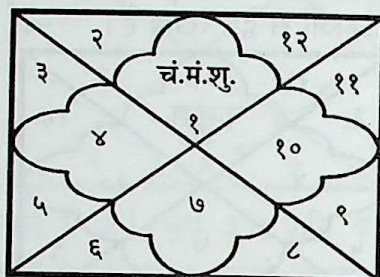 २ १२
३ चं.मं.शु. ११
१
४ १०
५ ७ ९
६ ८